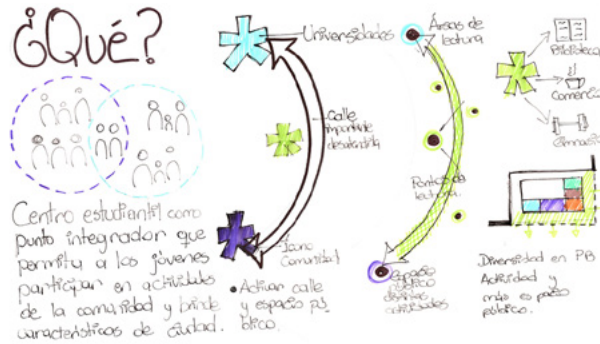 ¿Qué?
Centro estudiantil como
punto integrador que
permita a los jóvenes
participar en actividades
de la comunidad y brinde
características de ciudad.
Universidades
calle
importante
desatendida
Icono
Comunidad
• Activar calle
y espacio pú
blico.
Áreas de
lectura
Puntos de
lectura.
Espacio
público
diversas
actividades
Biblioteca
Comercio
Gimnasio
Diversidad en PB
Actividad y
más espacio
público.